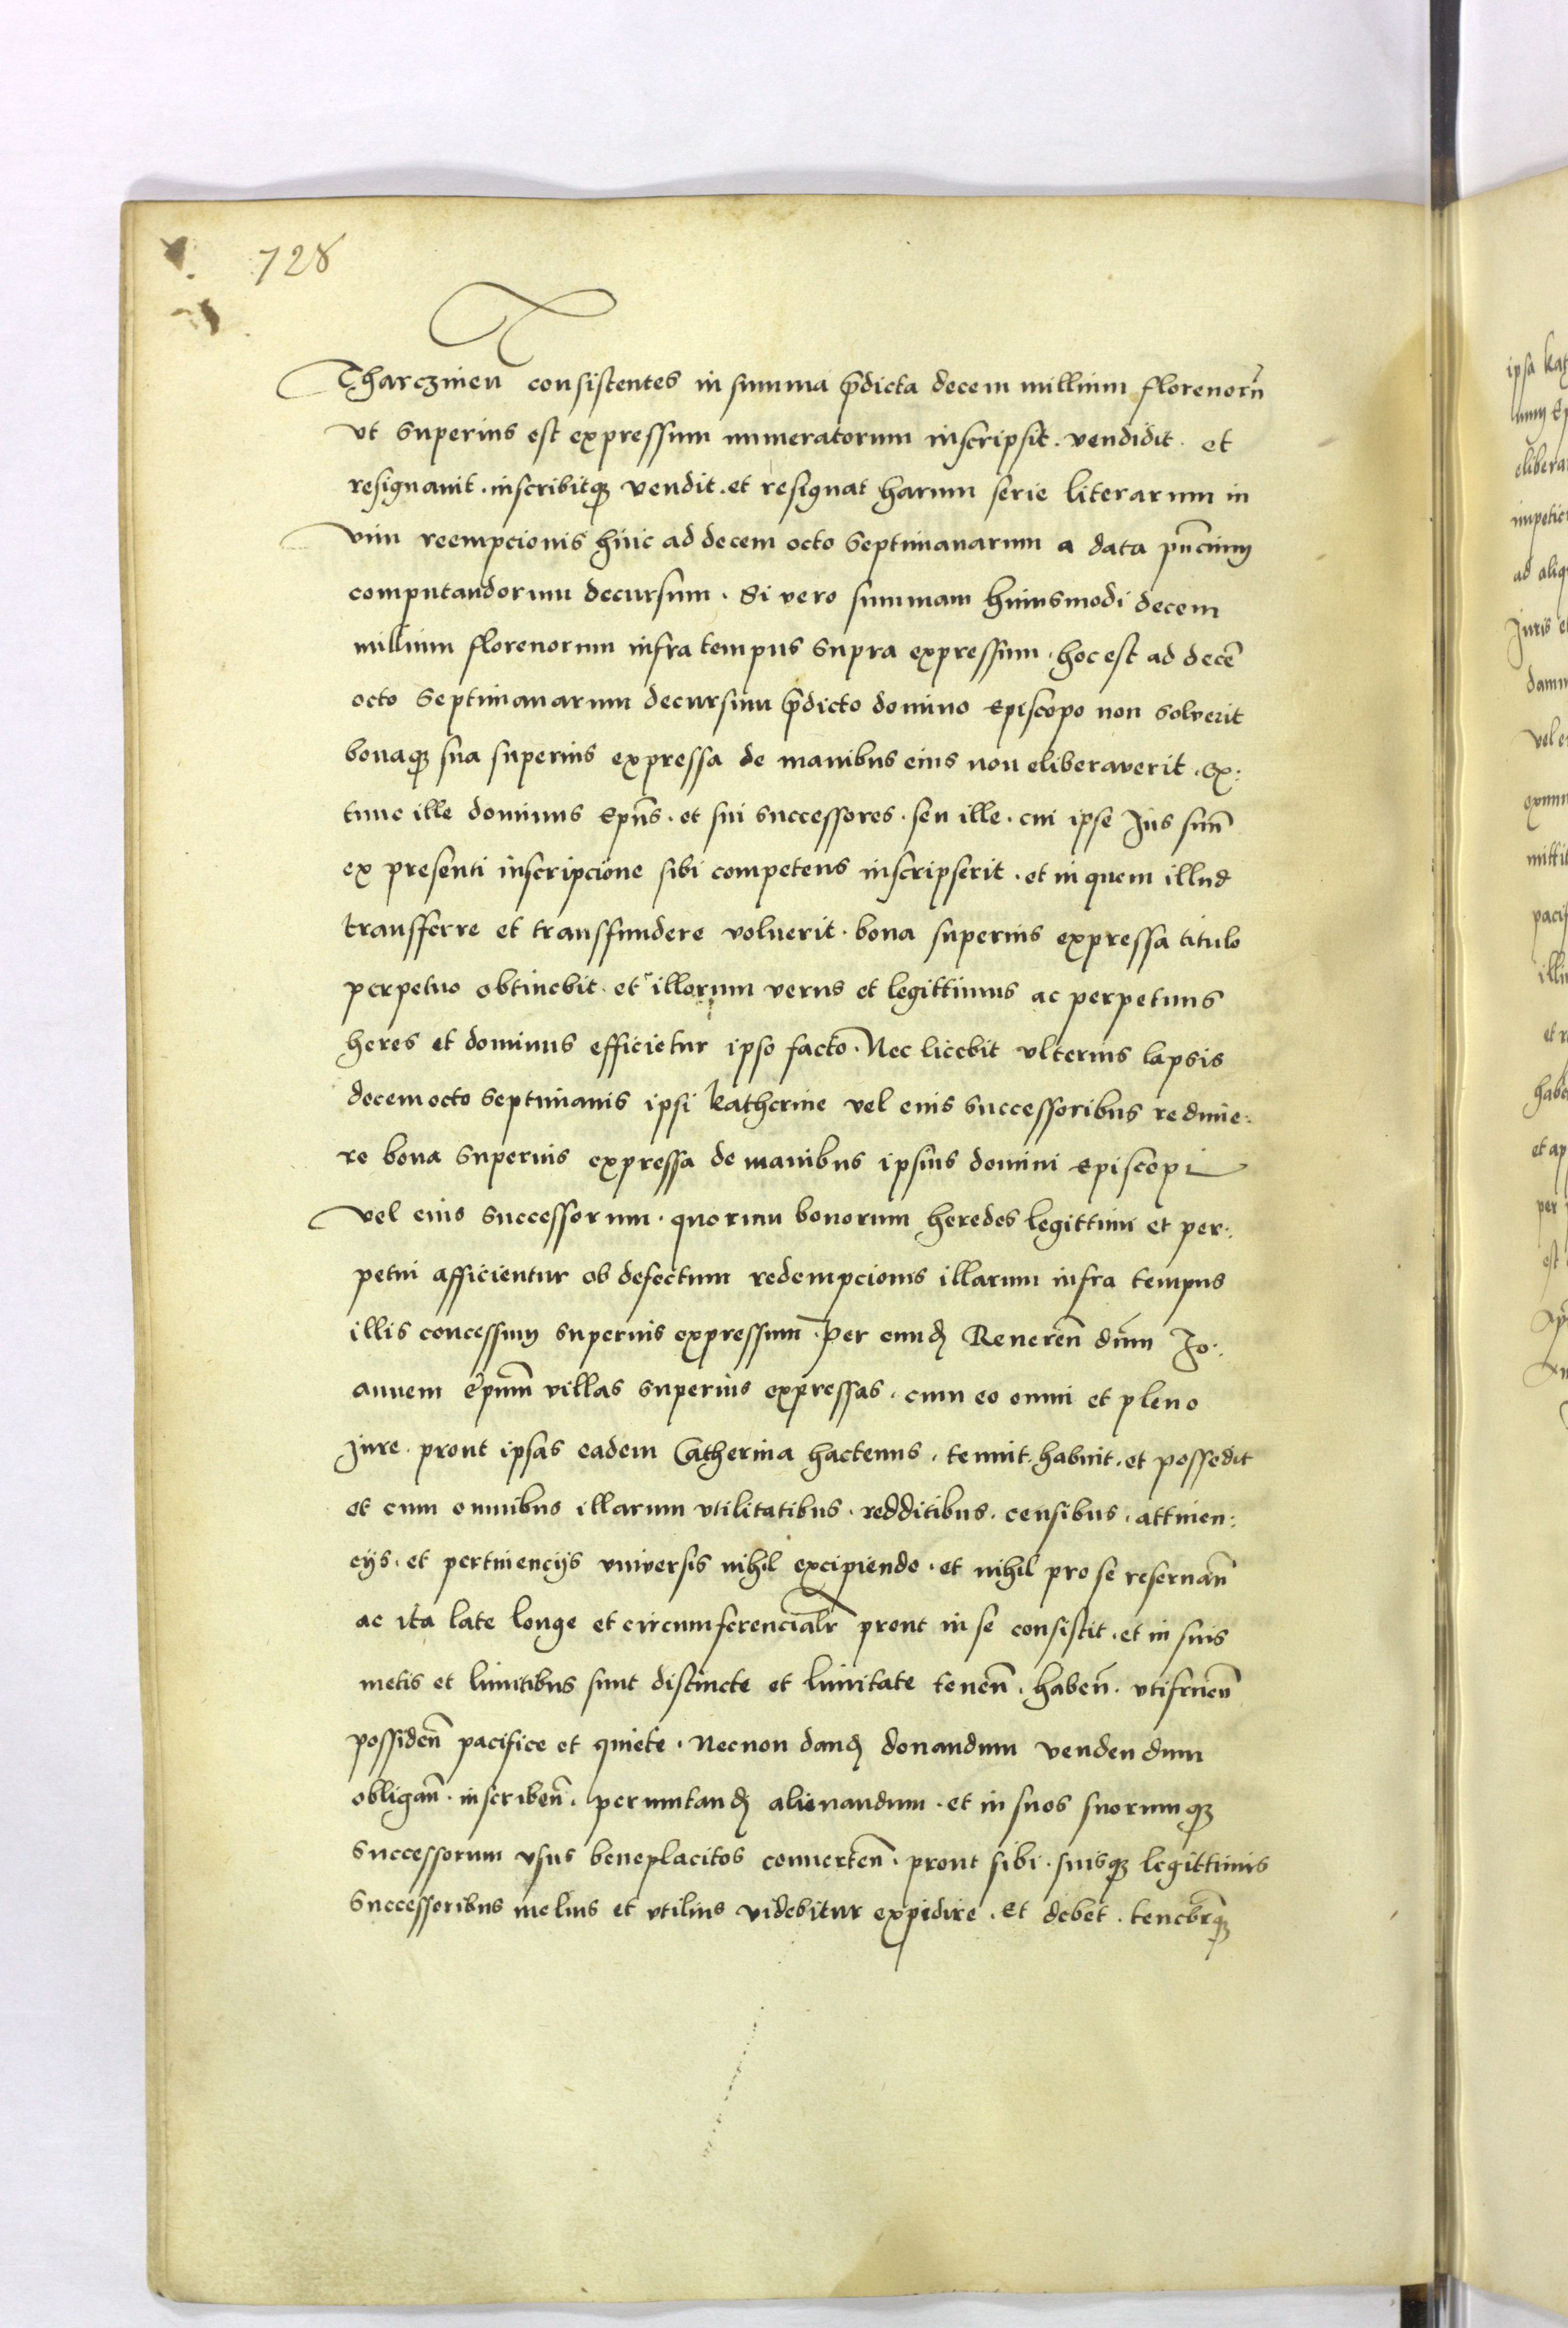 728
Tharczinen consistentes in summa p̄dicta decem millium florenorū
vt superius est expressum numeratorum inscripsit. vendidit. et
resignauit. inscribitqꝫ vendit. et resignat harum serie literarum in
vim reempcionis hinc ad decem octo septimanarum a data pn̄cium
computandorum decursum. Si vero summam huiusmodi decem
millium florenorum infra tempus supra expressum. hoc est ad decē
octo septimanarum decursum p̄dicto domino Episcopo non solverit
bonaqꝫ sua superius expressa de manibus eius non eliberaverit. Ex:
tunc ille dominus Epūs. et sui successores. seu ille. cui ipse Jus suū
ex presenti inscripcione sibi competens inscripserit. et in quem illud
transferre et transfundere voluerit. bona superius expressa titulo
perpetuo obtinebit. et illorum verus et legittimus ac perpetuus
heres et dominus efficietur ipso facto. Nec licebit vlterius lapsis
decem octo septimanis ipsi Katherine vel eius successoribus redime:
re bona superius expressa de manibus ipsius domini Episcopi
vel eius successorum. quorum bonorum heredes legittimi et per:
petui afficientur ob defectum redempcionis illarum infra tempus
illis concessum superius expressum. per eundꝫ Reuerēn dūm Jo:
annem Epūm villas superius expressas. cum eo omni et pleno
Jure. prout ipsas eadem Catherina hactenus. tenuit. habuit. et possedit
et cum omnibus illarum vtilitatibus. redditibus. censibus. attinen:
cijs. et pertinencijs vniversis nihil excipiendo. et nihil pro se reseruān
ac ita late longe et circumferencialr̄ prout in se consistit. et in suis
metis et limitibus sunt distincte et limitate tenēn. habēn. vtifruēn
possidēn pacifice et quiete. Necnon dandꝫ donandum vendendum
obligān. inscribēn. permutandꝫ alienandum. et in suos suorumqꝫ
successorum vsus beneplacitos conuertēn. prout sibi. suisqꝫ legittimis
successoribus melius et vtilius videbitur expedire. Et debet. tenebr̄qꝫ